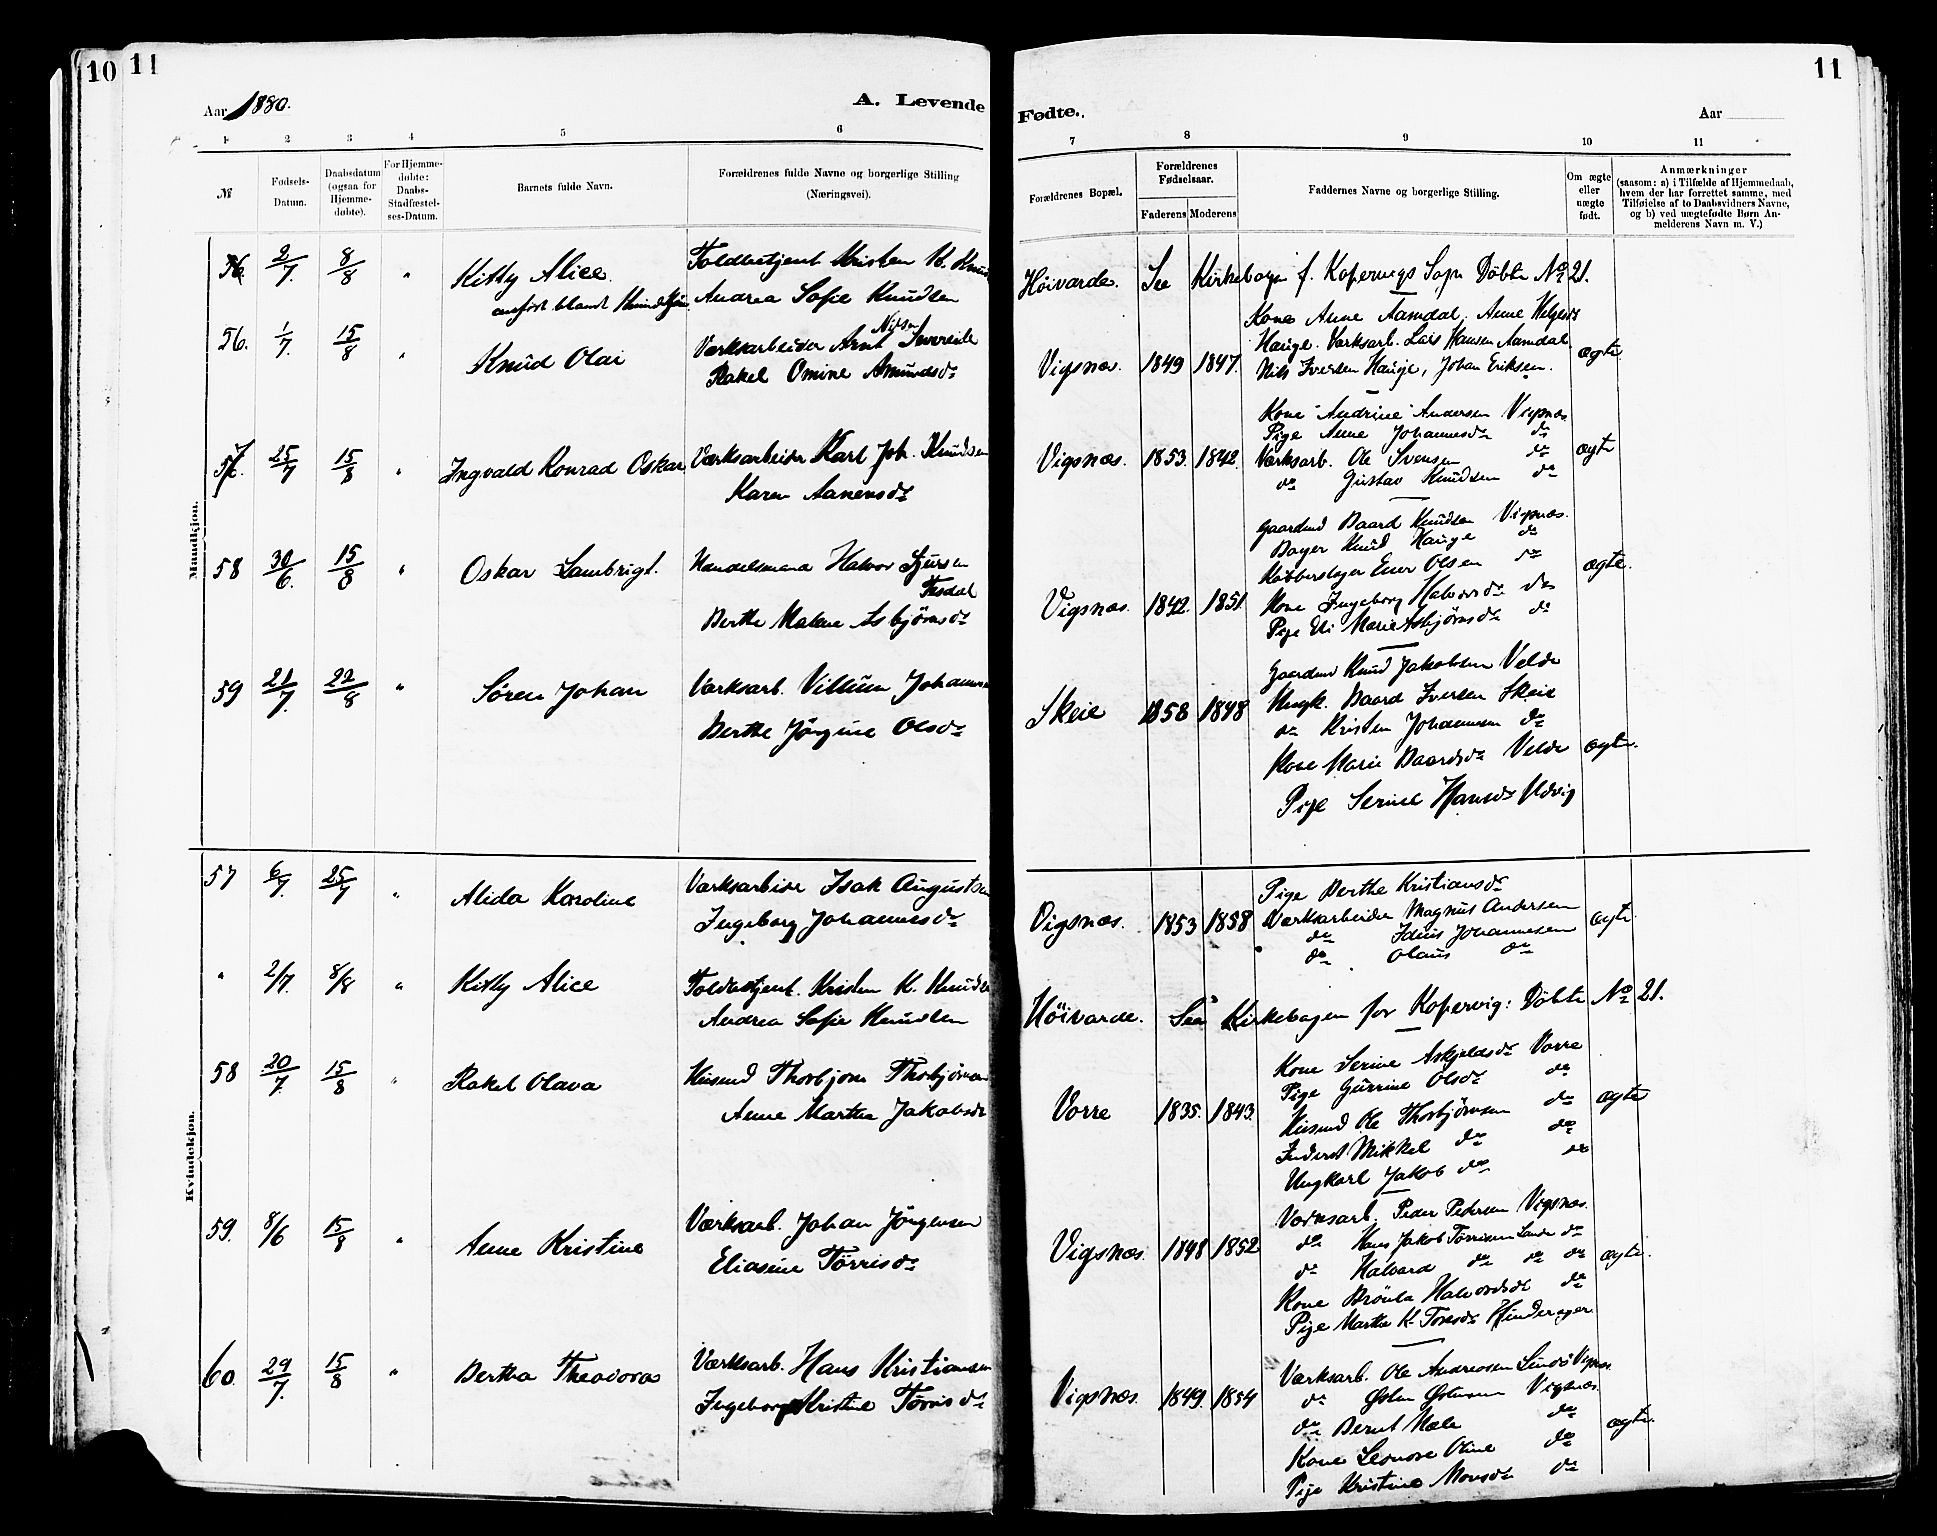 10 11
11
Aar 1880.
A. Levende
Fødte.
Aar
1 2 3 4 5 6
7 8 9 10 11
№
Fødsels-Datum.
Daabsdatum (ogsaa for Hjemme-døbte).
For Hjemme-døbte: Daabs-Stadfæstel-ses-Datum.
Barnets fulde Navn.
Forældrenes fulde Navne og borgerlige Stilling
(Næringsvei).
Forældrenes Bopæl.
Forældrenes Fødselsaar.
Faderens Moderens
Faddernes Navne og borgerlige Stilling.
Om ægte eller uægte født.
Anmærkninger
(saasom: a) i Tilfælde af Hjemmedaab,
hvem der har forrettet samme, med
Tilføielse af to Daabsvidners Navne,
og b) ved uægtefødte Børn An-
melderens Navn m. V.)
Mandkjøn.
56. 2/7. 8/8 " Kitty Alice
anført blandt Kvindekjøn
Toldbetjent Kristen K. Knudsen
Andrea Sofie Knudsen
Høivarde. See Kirkebogen f. Kopervigs Sogn Døbte No 21.
56. 1/7. 15/8 " Knud Olai
Værksarbeider Arnt Nilsen Sævereide
Rakel Omine Amundsdr
Vigsnæs. 1849 1847.
Kone Anne Aamdal, Anne Helgesdr
Hauge. Værksarb. Lars Hansen Aamdal
Nils Iversen Hauge, Johan Eriksen.
ægte
57. 25/7 15/8 " Ingvald Konrad Oskar
Værksarbeider Karl Joh. Knudsen
Karen Aanensdr
Vigsnæs. 1853. 1842.
Kone Andrine Andersen Vigsnæs
Pige Anne Johannesdr do
Værksarb. Ole Svensen do
do Gustav Knudsen do
ægte
58 30/6. 15/8 " Oskar Lambrigt.
Handelsmand Halvor Sjursen
Tesdal
Berthe Malene Asbjørnsdr
Vigsnæs. 1842. 1851.
Gaardmd Baard Knudsen Vigsnæs.
Bager Knud Hauge do
Kobberslager Ener Olsen do
Kone Ingeborg Halvorsdr do
Pige Eli Marie Asbjørnsdr do
ægte.
59 21/7. 22/8 " Søren Johan
Værksarb. Villum Johannesen
Berthe Jørgine Olsdr
Skeie 1858 1848
Gaardmd Knud Jakobsen Velde
Ungk. Baard Iversen Skeie
do Kristen Johannesen do
Kone Marie Baardsdr Velde
Pige Serine Hansdr Udvig
ægte.
Kvindekjøn.
57 6/7. 25/7 " Alida Karoline
Værksarbeider Isak Augustsen
Ingeborg Johannesdr
Vigsnæs. 1853 1858
Pige Berthe Kristiansdr
Værksarbeider Magnus Andersen
do Johannesen
do Olaus do
ægte
" 2/7. 8/8 " Kitty Alice
Toldbetjent. Kristen K. Knudsen
Andrea Sofie Knudsen
Høivarde. See Kirkebogen for Kopervig: Døbte No 21.
58 20/7. 15/8 " Rakel Olava
Huusmd Thorbjørn Thorbjørnsen
Anne Martha Jakobsdr
Vorre 1835. 1843.
Kone Serine Askjeldsdr Vorre
Pige Gurrine Olsdr do
Huusmd Ole Thorbjørnsen do
Inderst Mikkel do do
Ungkarl Jakob do do
ægte
59. 8/6 15/8 " Anne Kristine
Værksarb. Johan Jørgensen
Eliasine Tørrisdr
Vigsnæs. 1848 1852
Værksarb. Peder Pedersen Vigsnæs.
do Hans Jakob Tørrisen Lande do
do Halvard do do do
Kone Halvordsdr do
Pige Martha K. Tonesdr Hinderager
ægte.
60. 29/7. 15/8 " Bertha Theodora
Værksarb. Hans Kristiansen
Ingeborg Kristine Tørrisdr
Vigsnæs. 1849. 1854
Værksarb. Ole Andreasen Vigsnæs
do Østen Østensen Vigsnæs.
do Bernt Mæle do
Kone Leonore Oline do
Pige Kristine Monsdr do
ægte.